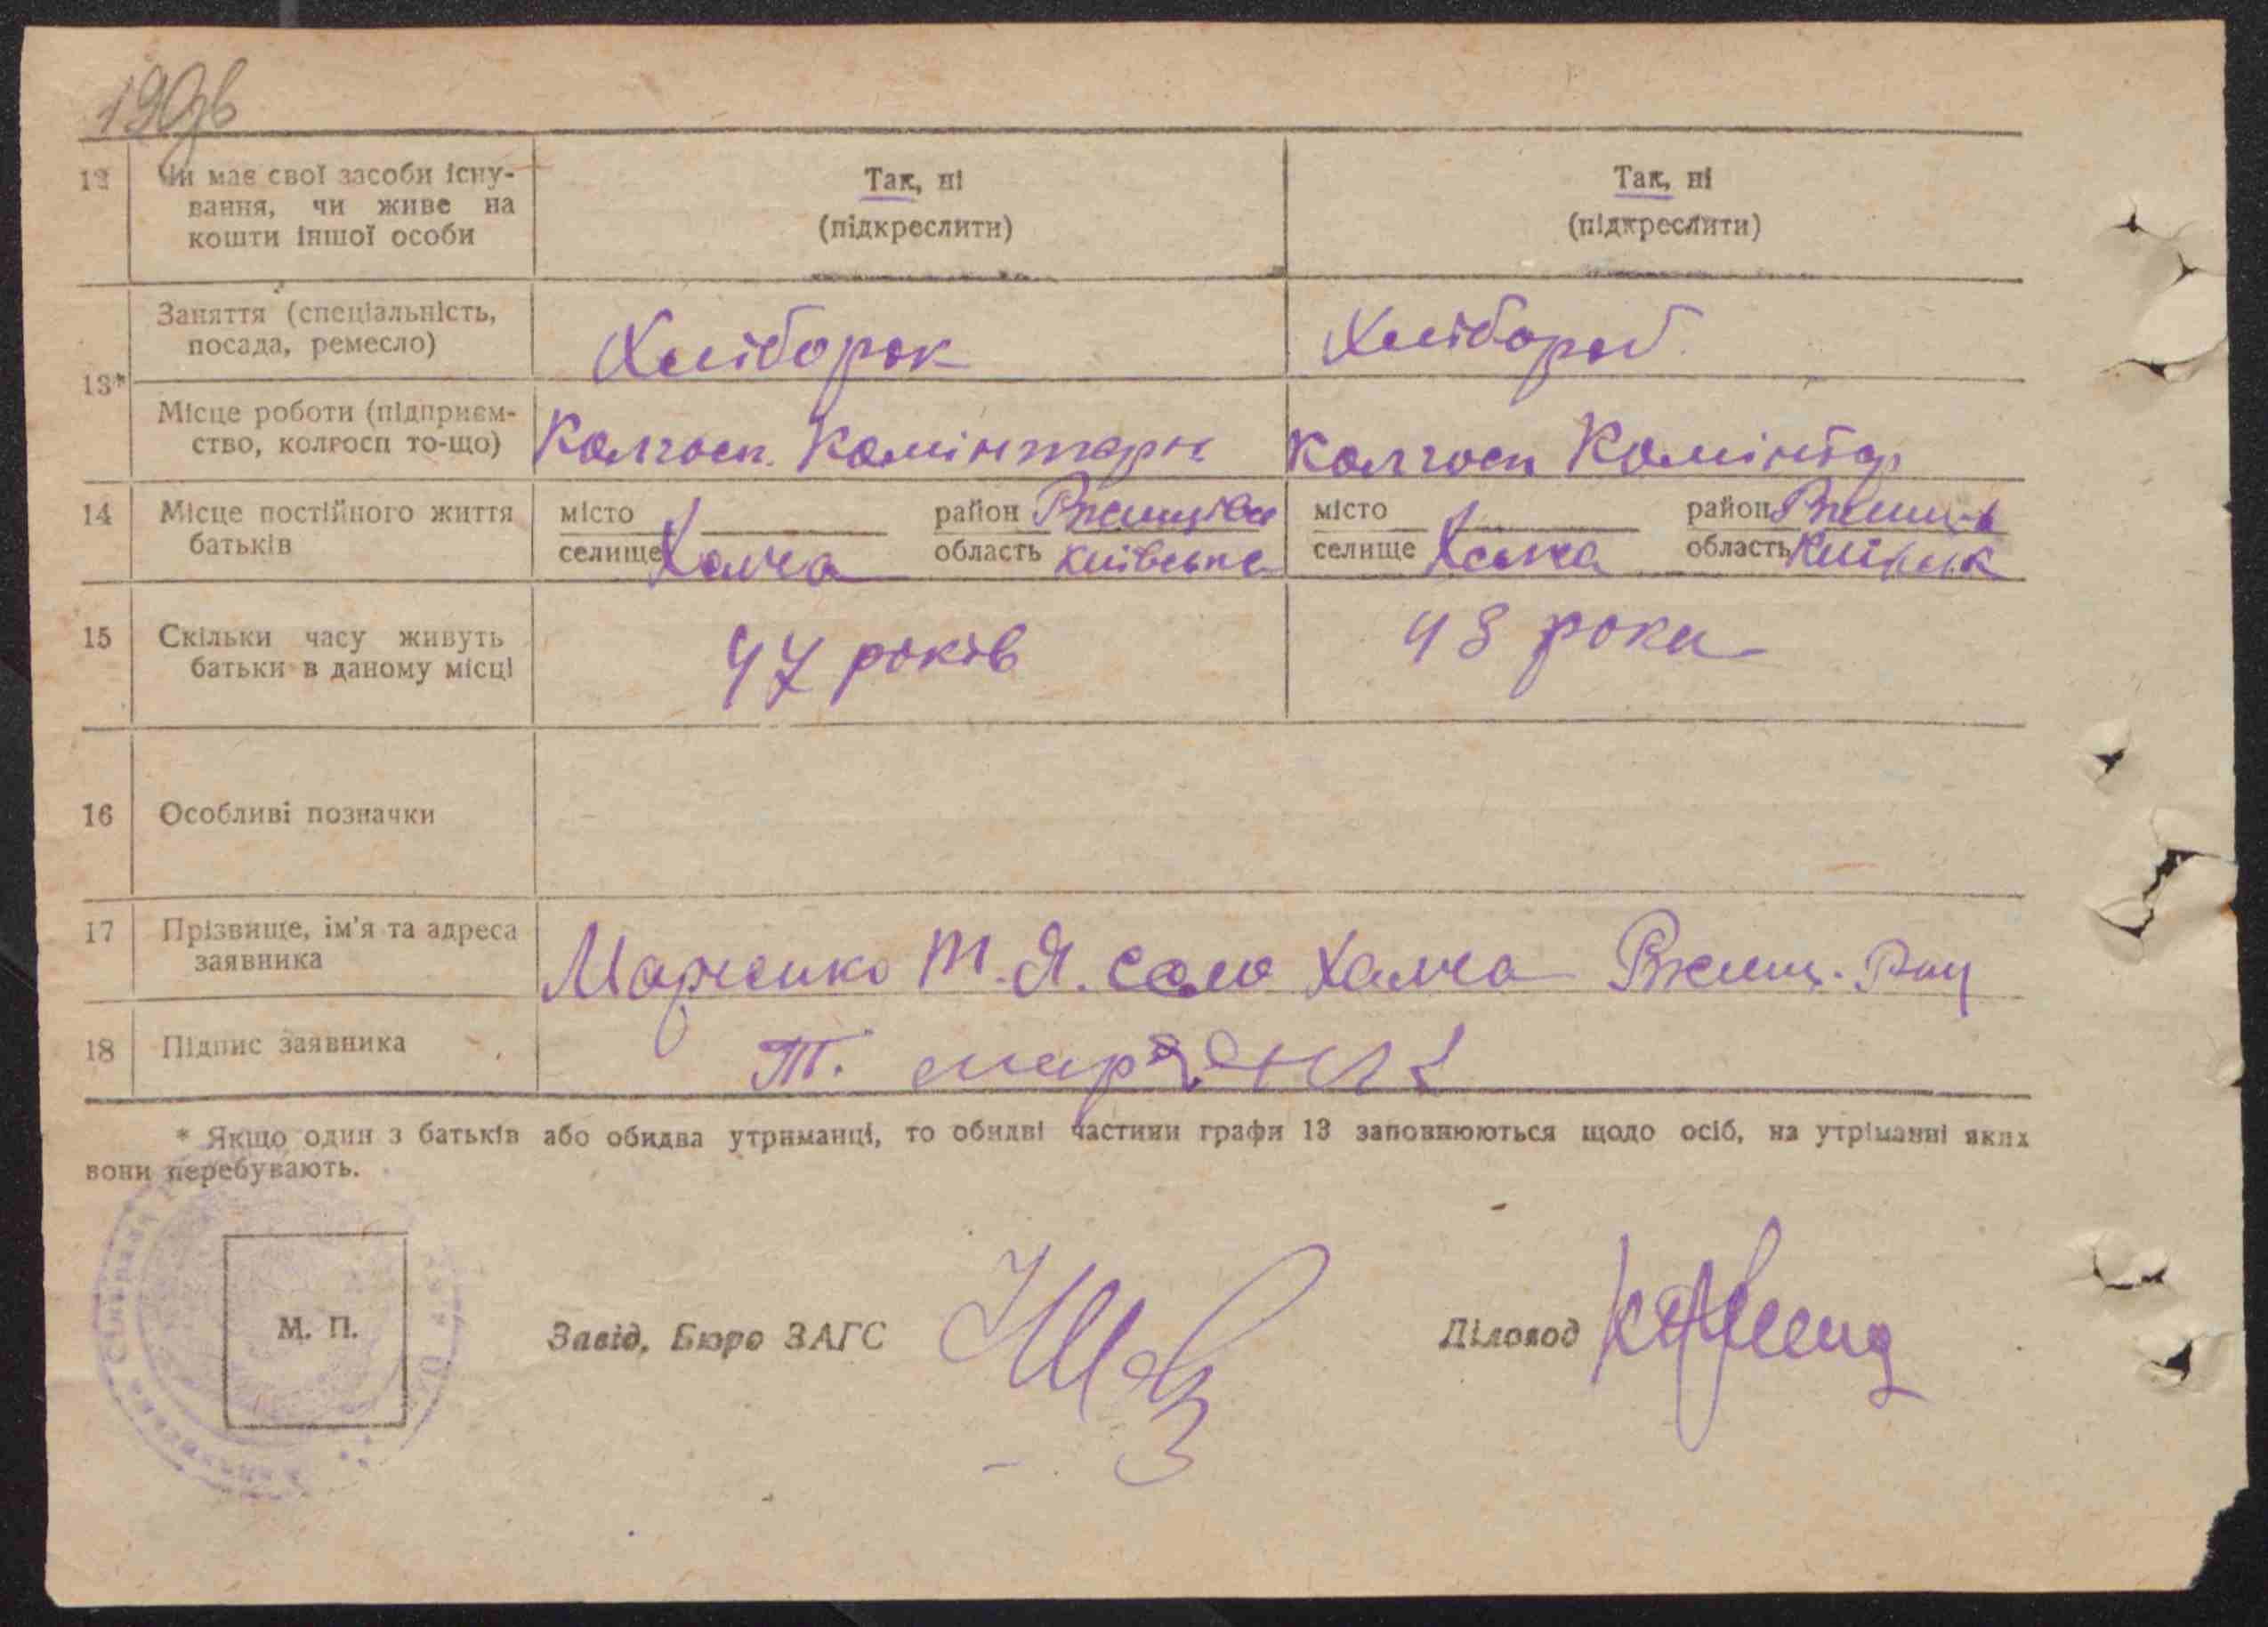 190зв
12 Чи має свої засоби існу- Так, ні Так, ні
вання, чи живе на (підкреслити) (підкреслити)
кошти іншої особи
13* Заняття (спеціальність, Хлібороб Хлібороб
посада, ремесло)
Місце роботи (підприєм- Колгосп. Комінтерн Колгосп Комінтер
ство, колгосп то-що)
14 Місце постійного життя місто район місто район
батьків селище Халча область Київська селище Халча область
15 Скільки часу живуть 47 років 43 роки
батьки в даному місці
16 Особливі позначки
17 Прізвище, ім'я та адреса Марченко Т. Я. село Халча Ржищ.
заявника
18 Підпис заявника Т.
* Якщо один з батьків або обидва утриманці, то обидві частини графи 13 заповнюються щодо осіб, на утріманні яких
вони перебувають.
М. П. Завід. Бюро ЗАГС Діловод